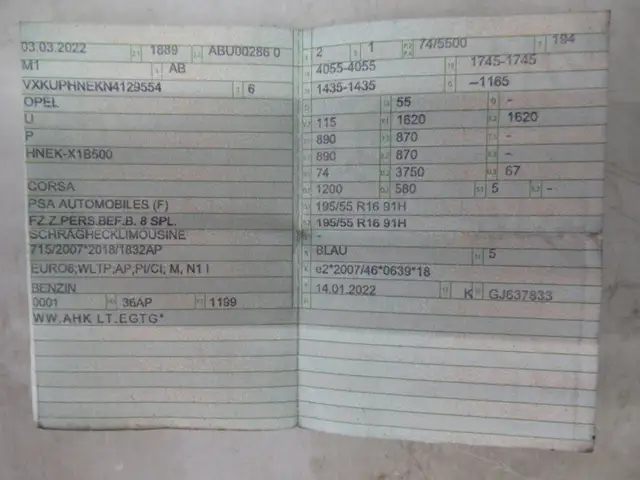 03.03.2022 1889 ABU00286 0
M1 AB
VXKUPHNEKN4129554 6
OPEL
U
P
HNEK-X1B500
CORSA
PSA AUTOMOBILES (F)
FZ.Z.PERS.BEF.B. 8 SPL.
SCHRÄGHECKLIMOUSINE
715/2007*2018/1832AP
EURO6;WLTP;AP;PI/CI; M, N1 I
BENZIN
0001 36AP 1199
WW.AHK LT.EGTG*
2 1 74/5500 194
4055-4055 1745-1745
1435-1435 –1165
55 -
115 1620 1620
890 870 -
890 870 -
74 3750 67
1200 580 5 -
195/55 R16 91H
195/55 R16 91H
-
BLAU 5
e2*2007/46*0639*18
14.01.2022 K GJ637833